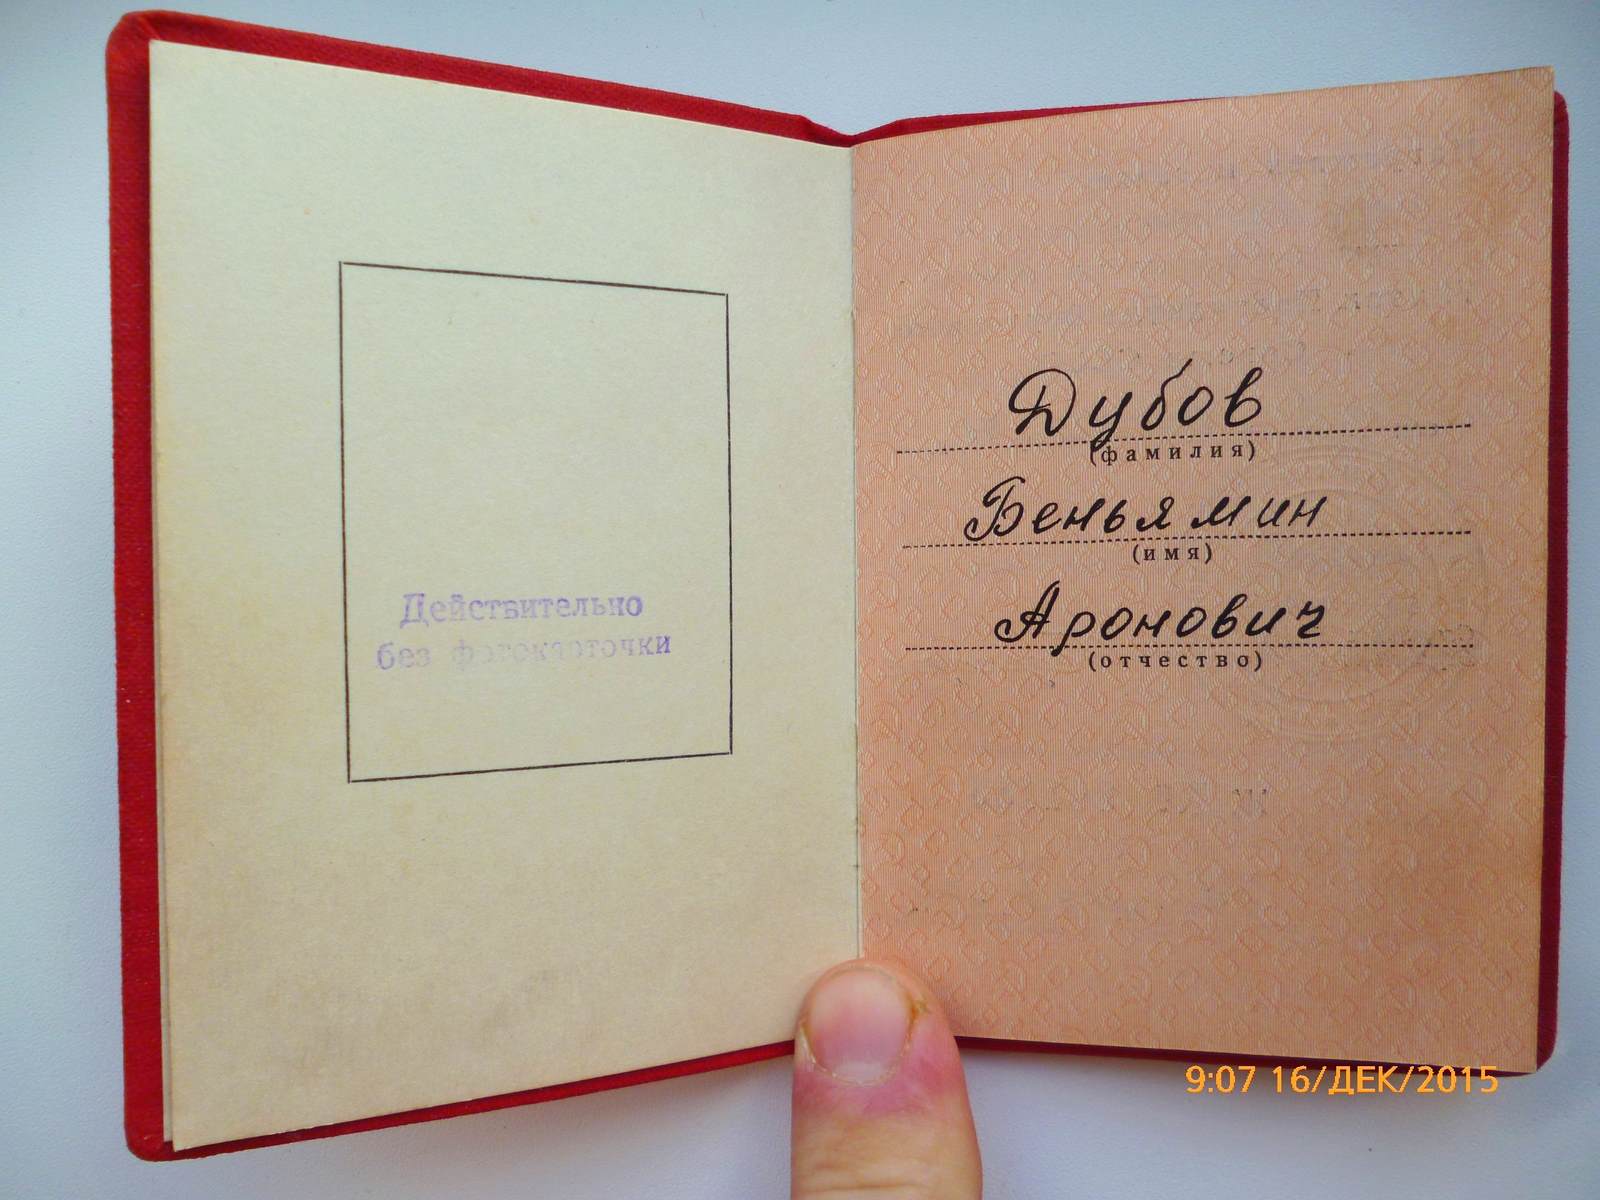 Действительно
без фотокарточки
Дубов
(фамилия)
Беньямин
(имя)
Аронович
(отчество)
9:07 16/ДЕК/2015